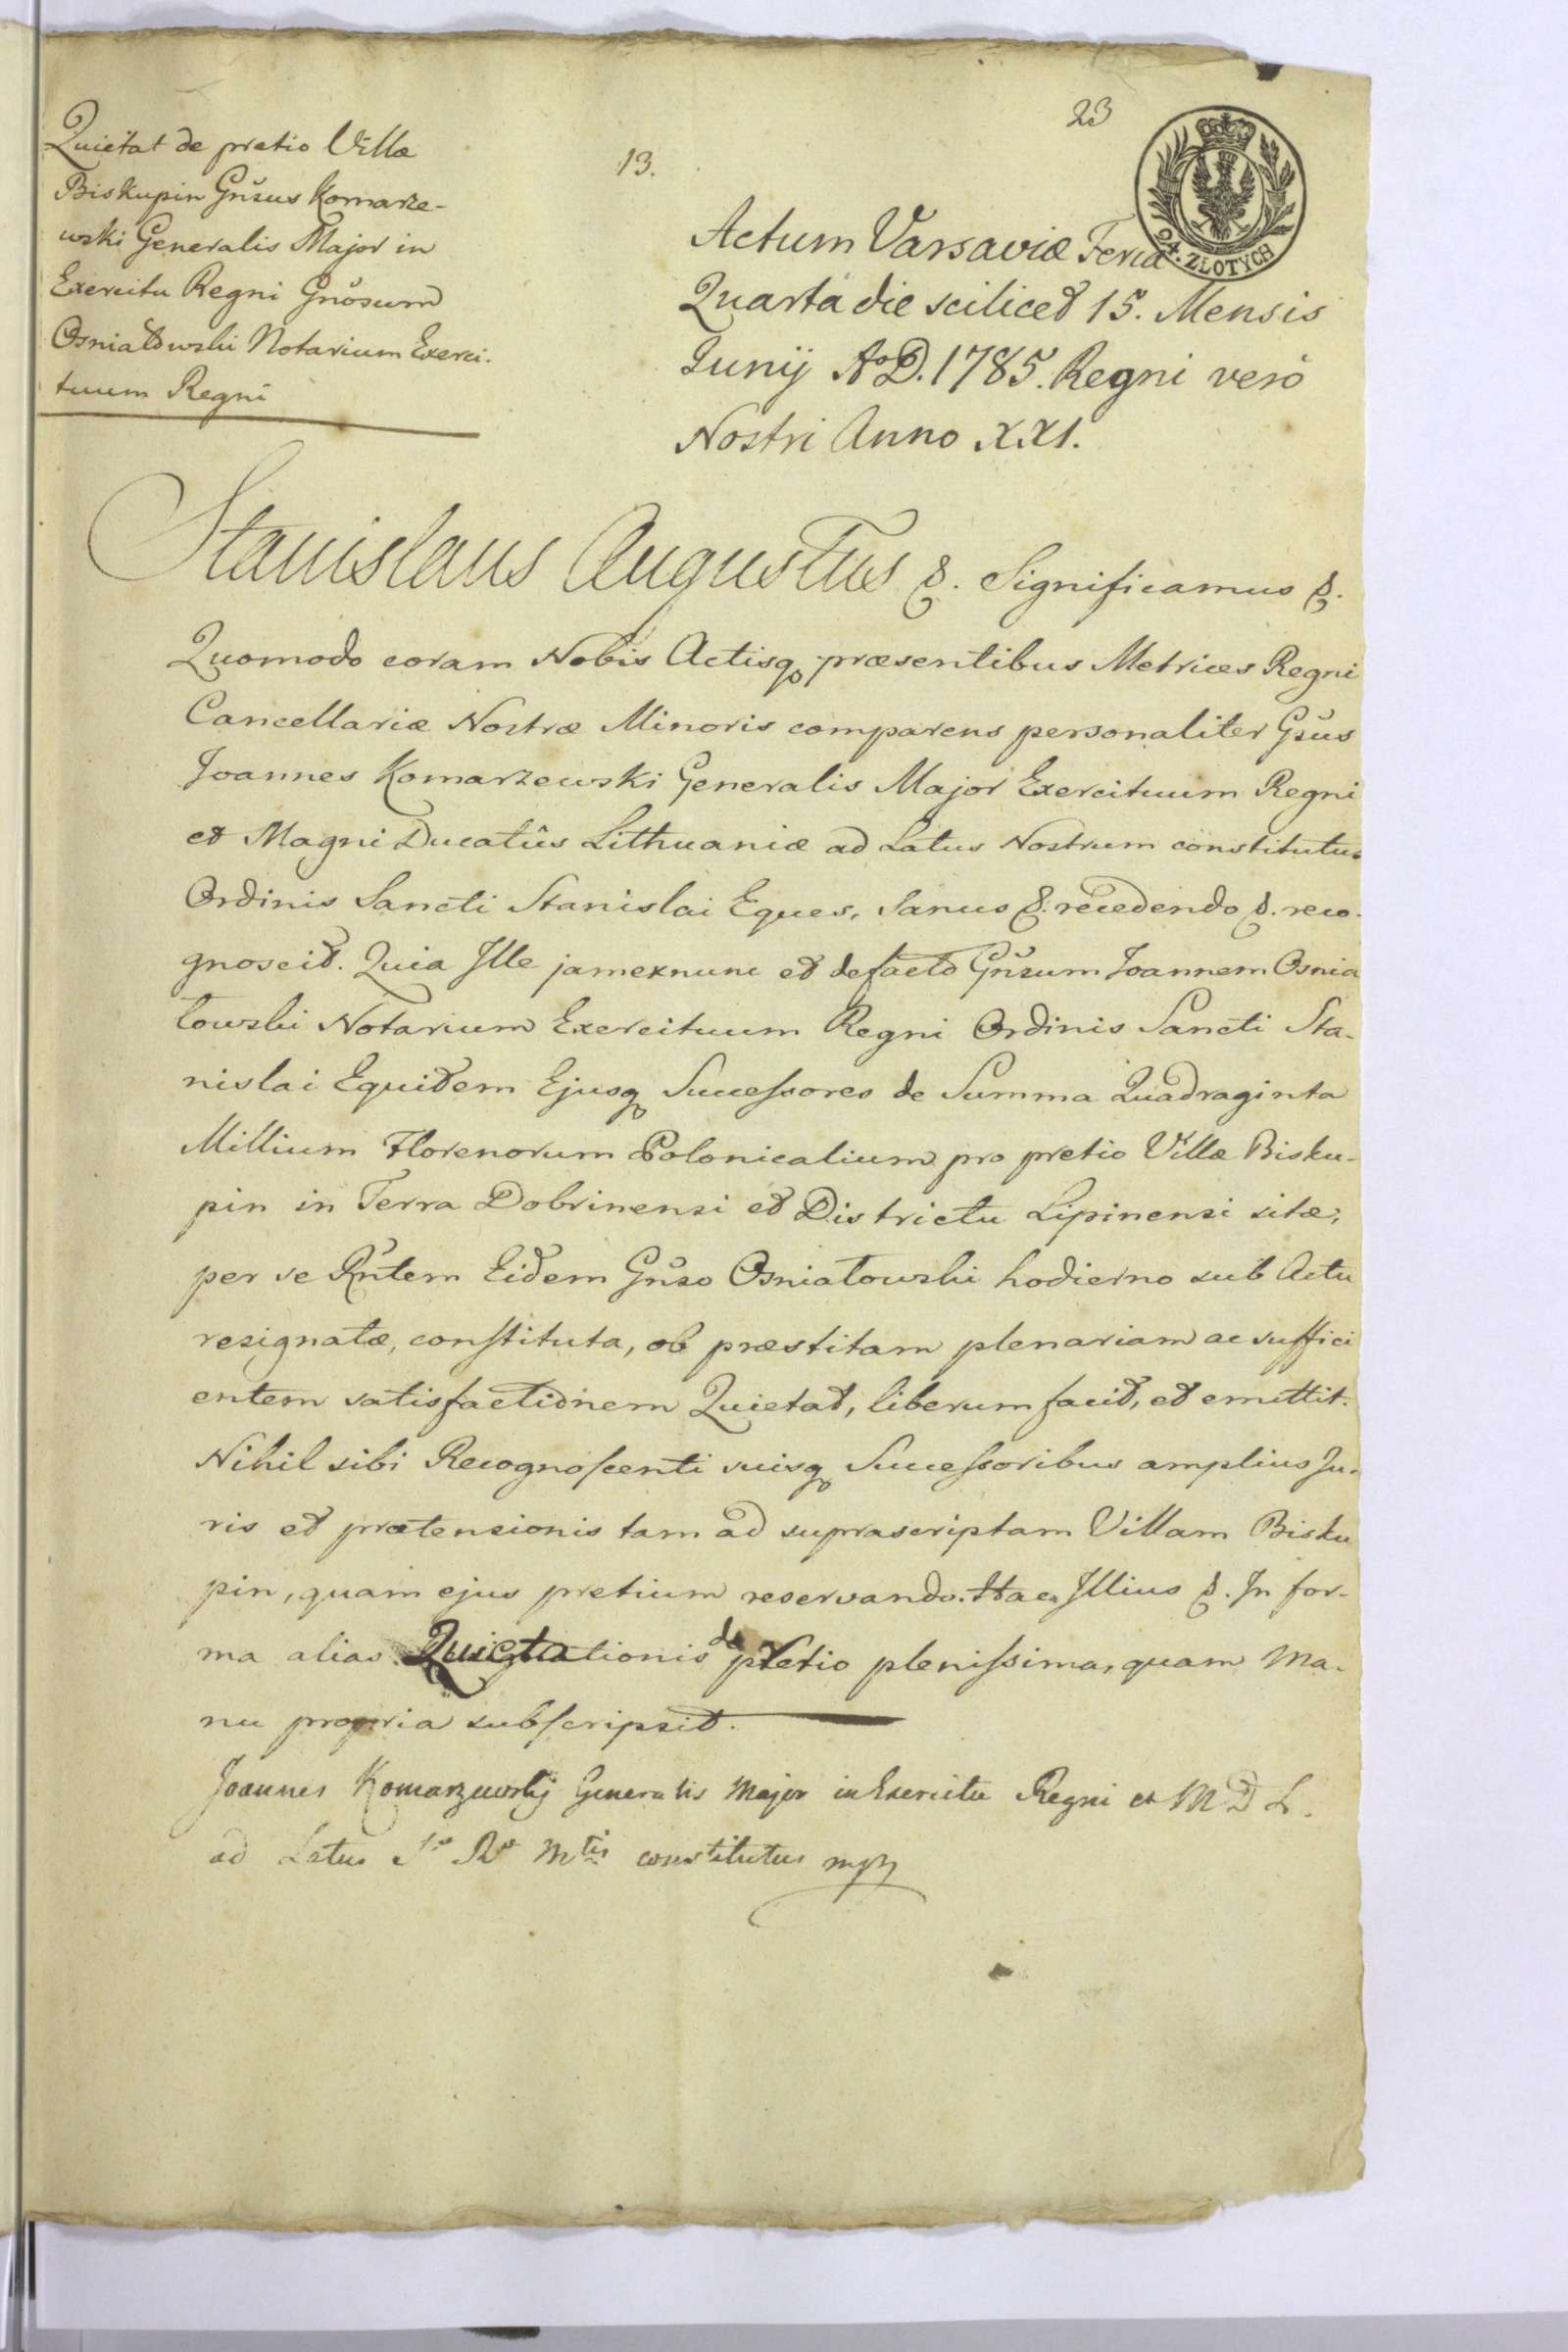 23
13.
Quietat de pretio Villæ
Biskupin Gñsus Komarze-
wski Generalis Major in
Exercitu Regni Gnosum
Osniałowski Notarium Exerci-
tuum Regni
Actum Varsaviæ Feria
Quarta die scilicet 15. Mensis
Junij A°D. 1785. Regni verò
Nostri Anno XXI.
24. ZŁOTYCH
Stanislaus Augustus &. Significamus &.
Quomodo coram Nobis Actisq præsentibus Metrices Regni
Cancellariæ Nostræ Minoris comparens personaliter Gsus
Joannes Komarzewski Generalis Major Exercituum Regni
et Magni Ducatûs Lithuaniæ ad Latus Nostrum constitutus
Ordinis Sancti Stanislai Eques, Sanus &. recedendo &. reco-
gnoscit. Quia Ille jamexnunc et defacto Gñsum Joannem Osnia
łowski Notarium Exercituum Regni Ordinis Sancti Sta-
nislai Equitem Ejusq Successores de Summa Quadraginta
Millium Florenorum Polonicalium pro pretio Villæ Bisku-
pin in Terra Dobrinensi et Districtu Lipinensi sitæ,
per se Rñtem Eidem Gñso Osniałowski hodierno sub Actu
resignatæ, constituta, ob præstitam plenariam ac suffici
entem satisfactionem Quietat, liberum facit, et emittit.
Nihil sibi Recognoscenti suisq Successoribus amplius Ju-
ris et prætensionis tam ad suprascriptam Villam Bisku
pin, quam ejus pretium reservando. Hac Illius &. In for-
ma alias Quietationis de pretio plenissima, quam Ma-
nu propria subscripsit.
Joannes Komarzewskij Generalis Major in Exercitu Regni et M D L.
ad Latus Sæ Ræ Mtis constitutus mpp